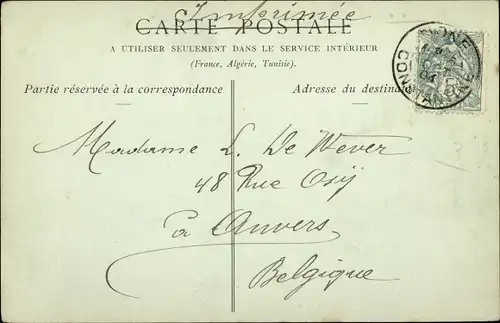 Imprimée
CARTE POSTALE
A UTILISER SEULEMENT DANS LE SERVICE INTÉRIEUR
(France, Algérie, Tunisie).
Partie réservée à la correspondance
Adresse du destinat
CONSTANTINE
Madame L. De Wever
48 Rue Osÿ
à Anvers
Belgique